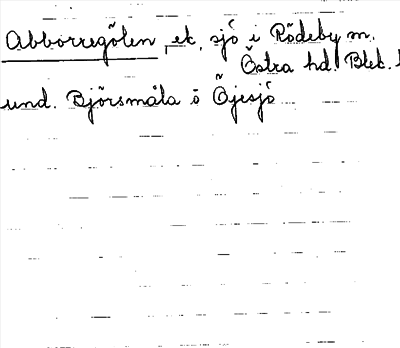 Abborregölen, ek, sjö i Rödeby m.
Östra hd. Blek.
und. Björsmåla o Öjesjö